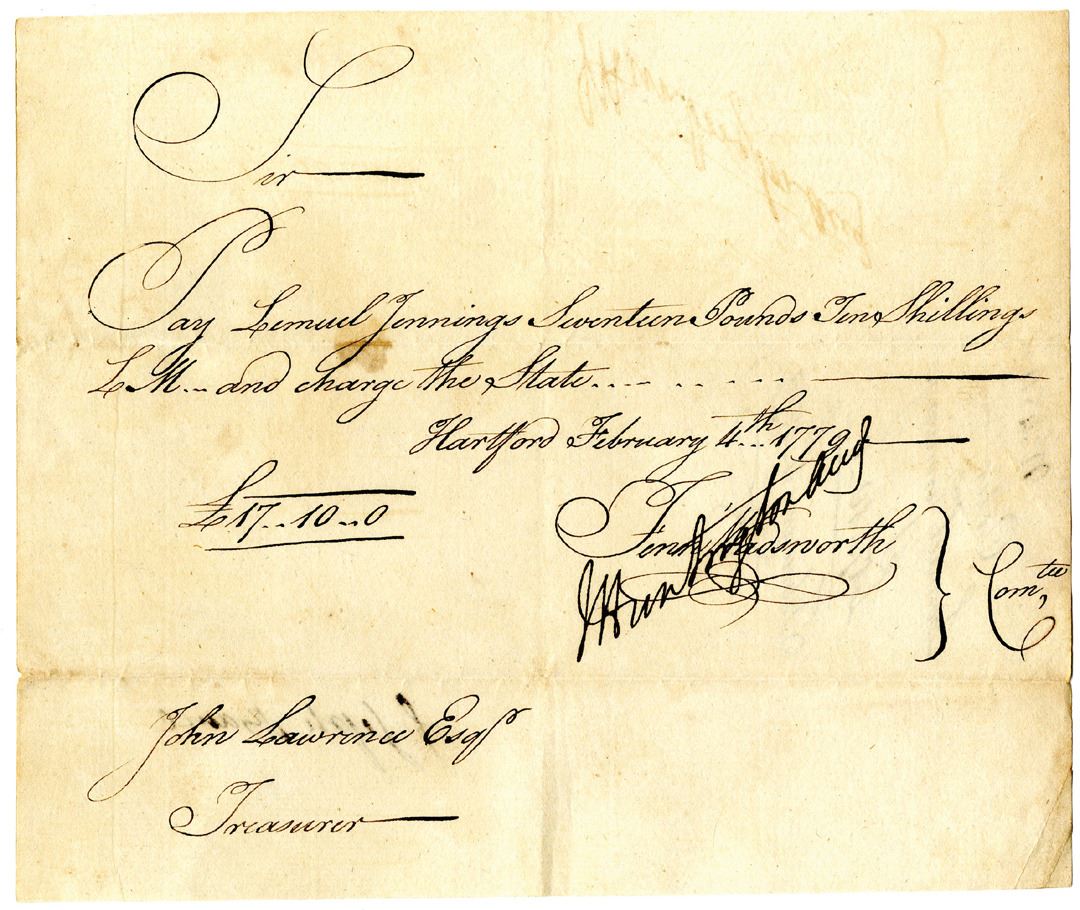 Sir
Pay Lemuel Jennings Seventeen Pounds Ten Shillings
L M... and charge the State.... .. .. ...
Hartford February 4th... 1779
£17..10..0
Fenn Wadsworth
Huntington
Comtee,
John Lawrence Esqr
Treasurer